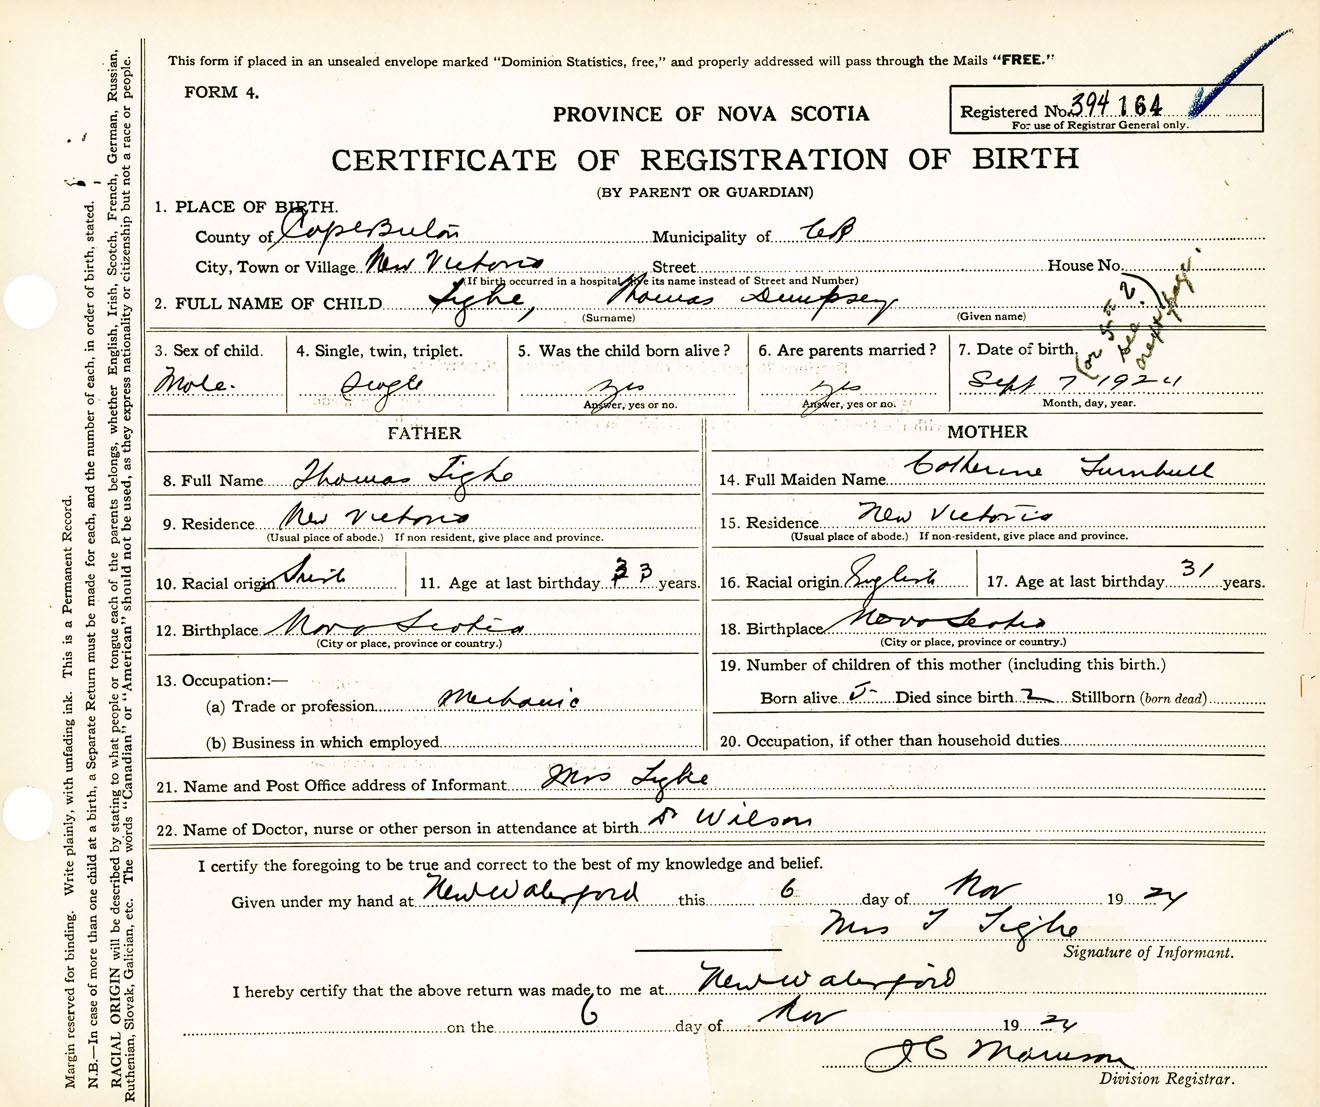 This form if placed in an unsealed envelope marked "Dominion Statistics, free," and properly addressed will pass through the Mails "FREE."
FORM 4.
PROVINCE OF NOVA SCOTIA
Registered No. 394 164
For use of Registrar General only.
CERTIFICATE OF REGISTRATION OF BIRTH
(BY PARENT OR GUARDIAN)
1. PLACE OF BIRTH.
County of Cape Breton Municipality of CB
City, Town or Village New Victoria Street House No.
(If birth occurred in a hospital give its name instead of Street and Number)
2. FULL NAME OF CHILD Tighe, Thomas Dempsey
(Surname) (Given name)
(or 5 = 2?) see next page.
3. Sex of child. 4. Single, twin, triplet. 5. Was the child born alive? 6. Are parents married? 7. Date of birth.
Male. Single yes yes Sept 7 1924
Answer, yes or no. Answer, yes or no. Month, day, year.
FATHER MOTHER
8. Full Name Thomas Tighe 14. Full Maiden Name Catherine Turnbull
9. Residence New Victoria 15. Residence New Victoria
(Usual place of abode.) If non resident, give place and province. (Usual place of abode.) If non-resident, give place and province.
10. Racial origin Irish 11. Age at last birthday 33 years. 16. Racial origin English 17. Age at last birthday 31 years.
12. Birthplace Nova Scotia 18. Birthplace Nova Scotia
(City or place, province or country.) (City or place, province or country.)
13. Occupation:— 19. Number of children of this mother (including this birth.)
(a) Trade or profession Mechanic Born alive 5 Died since birth 2 Stillborn (born dead)
(b) Business in which employed 20. Occupation, if other than household duties
21. Name and Post Office address of Informant Mrs Tighe
22. Name of Doctor, nurse or other person in attendance at birth Dr Wilson
I certify the foregoing to be true and correct to the best of my knowledge and belief.
Given under my hand at New Waterford this 6 day of Nov 1924
Mrs T Tighe
Signature of Informant.
I hereby certify that the above return was made to me at New Waterford
on the 6 day of Nov 1924
J C Morrison
Division Registrar.
Margin reserved for binding. Write plainly, with unfading ink. This is a Permanent Record.
N.B.—In case of more than one child at a birth, a Separate Return must be made for each, and the number of each, in order of birth, stated.
RACIAL ORIGIN will be described by stating to what people or tongue each of the parents belongs, whether English, Irish, Scotch, French, German, Russian,
Ruthenian, Slovak, Galician, etc. The words "Canadian" or "American" should not be used, as they express nationality or citizenship but not a race or people.